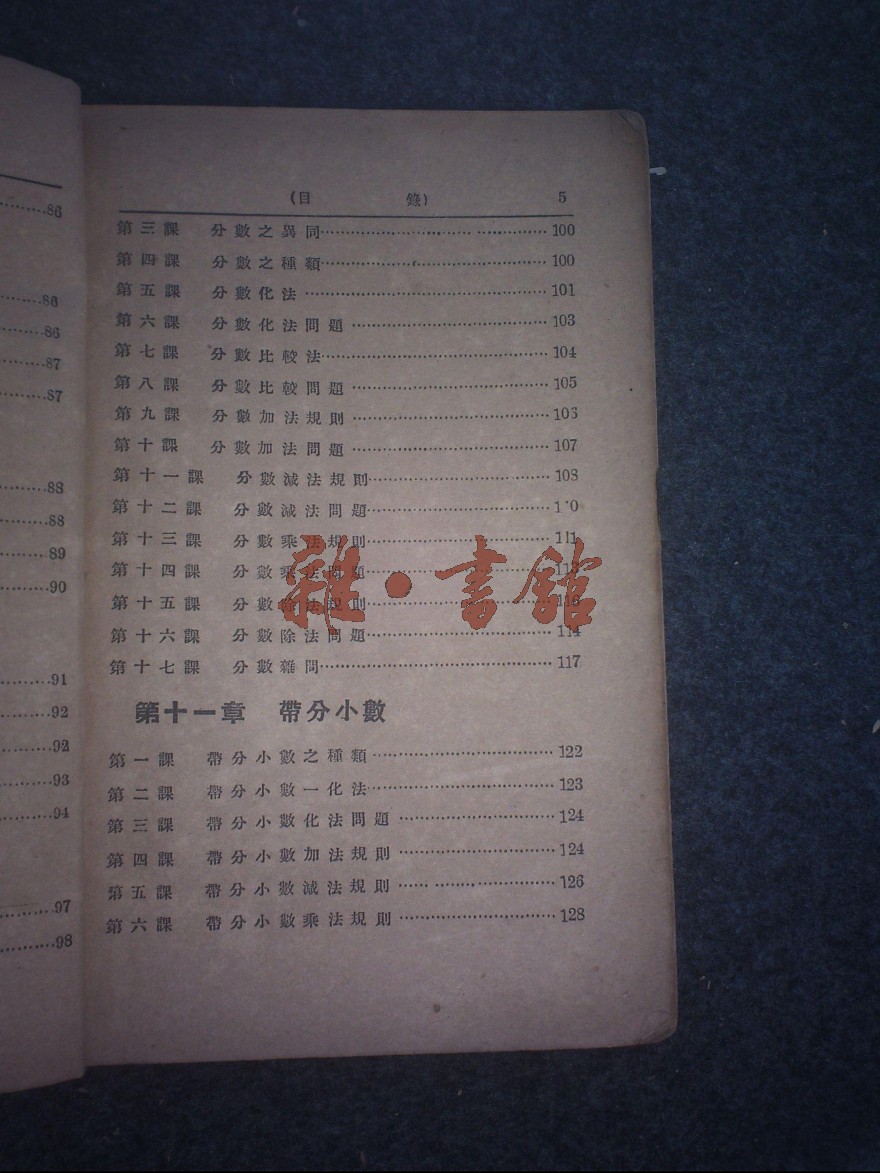 86
86
86
87
87
88
88
89
90
91
92
92
93
94
97
98
(目 錄) 5
第三課 分數之異同 100
第四課 分數之種類 100
第五課 分數化法 101
第六課 分數化法問題 103
第七課 分數比較法 104
第八課 分數比較問題 105
第九課 分數加法規則 106
第十課 分數加法問題 107
第十一課 分數減法規則 108
第十二課 分數減法問題
第十三課 分數乘法規則 111
第十四課 分數乘法問題
第十五課 分數除法規則
第十六課 分數除法問題 114
第十七課 分數雜問 117
雜·書館
第十一章 帶分小數
第一課 帶分小數之種類 122
第二課 帶分小數一化法 123
第三課 帶分小數化法問題 124
第四課 帶分小數加法規則 124
第五課 帶分小數減法規則 126
第六課 帶分小數乘法規則 128